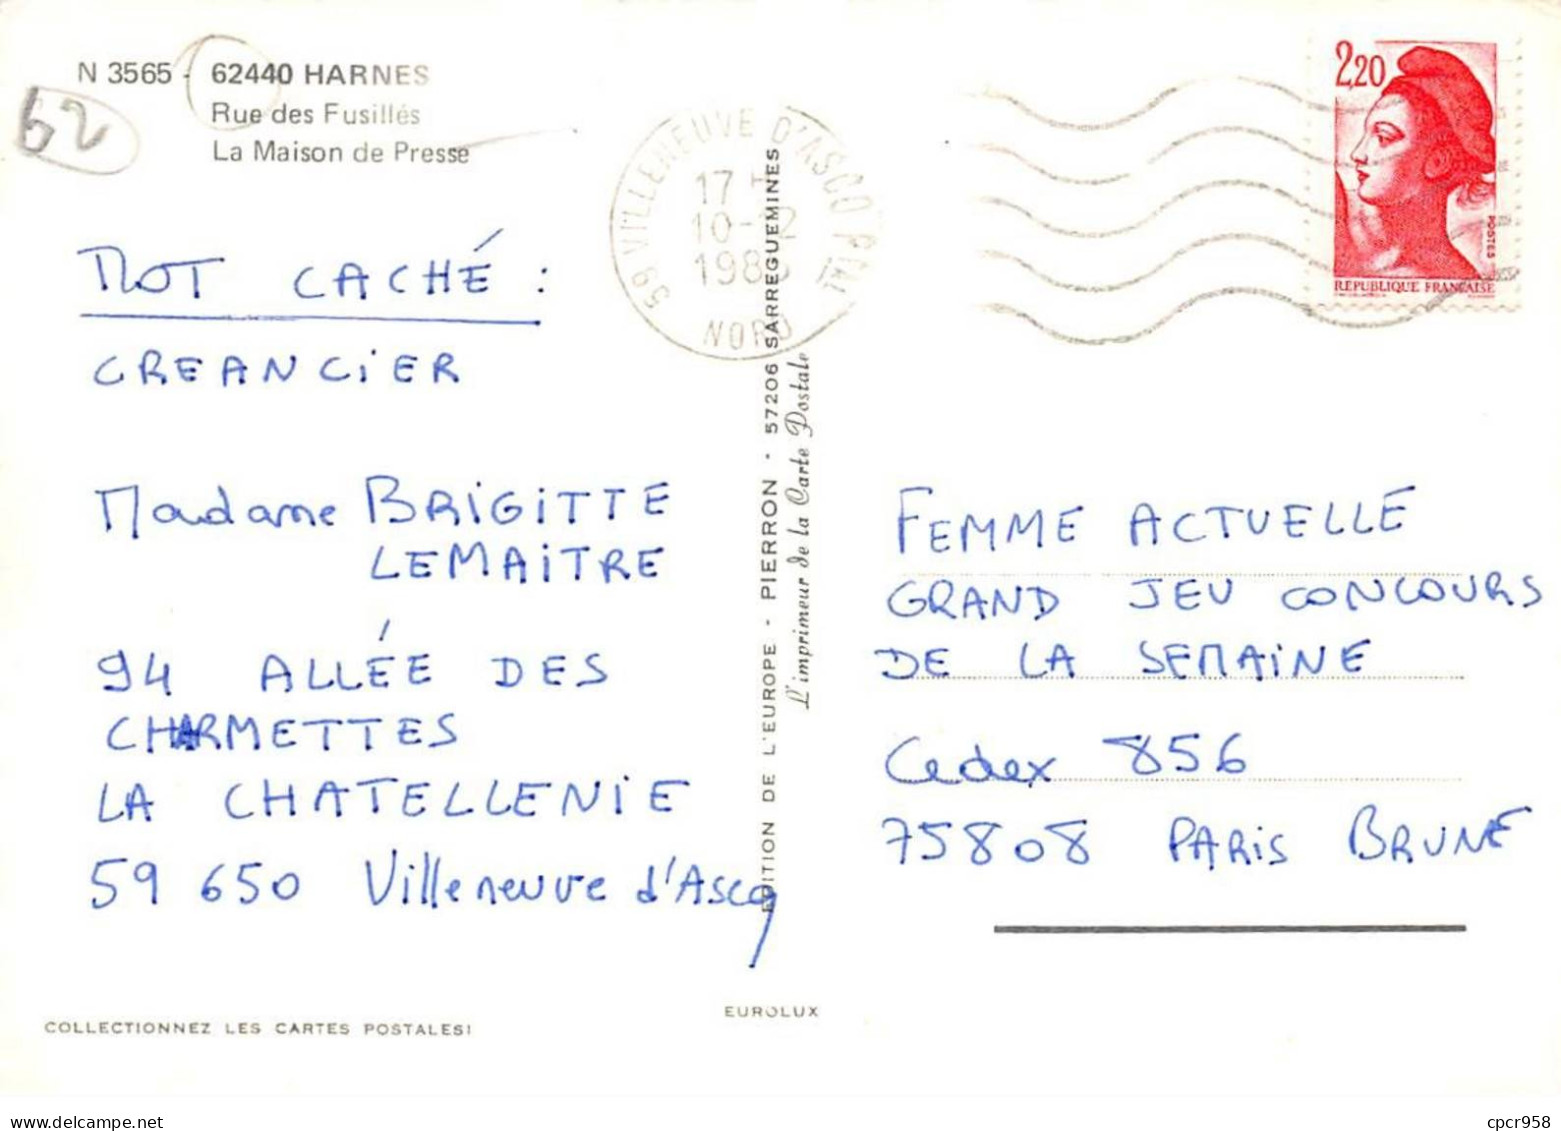 N 3565 - 62440 HARNES
Rue des Fusillés
La Maison de Presse
62
MOT CACHÉ :
CREANCIER
Madame BRIGITTE
LEMAITRE
94 ALLÉE DES
CHARMETTES
LA CHATELLENIE
59 650 Villeneuve d'Ascq
COLLECTIONNEZ LES CARTES POSTALES!
59 VILLENEUVE D'ASCQ PPAL
17 H
10-12
NORD
EDITION DE L'EUROPE - PIERRON - 57206 SARREGUEMINES
L'imprimeur de la Carte Postale
EUROLUX
2,20
POSTES
REPUBLIQUE FRANÇAISE
FEMME ACTUELLE
GRAND JEU CONCOURS
DE LA SEMAINE
Cedex 856
75808 PARIS BRUNE
www.delcampe.net
cpcr958